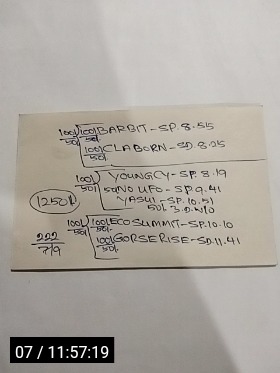 100/ 100/ BARBIT - SP. 8.55
50/ 50/
100/ CLABORN - SP. 8.25
50/
100/ YOUNGCY - SP. 8.19
50/ 50/ NO UFO - SP. 9.41
YASUI - SP. 10.51
1250/
50/
100/ 100/ ECO SUMMIT - SP. 10.10
50/ 50/
222 100/ GORSERISE - SD. 11.41
7/9 50/
07 / 11:57:19